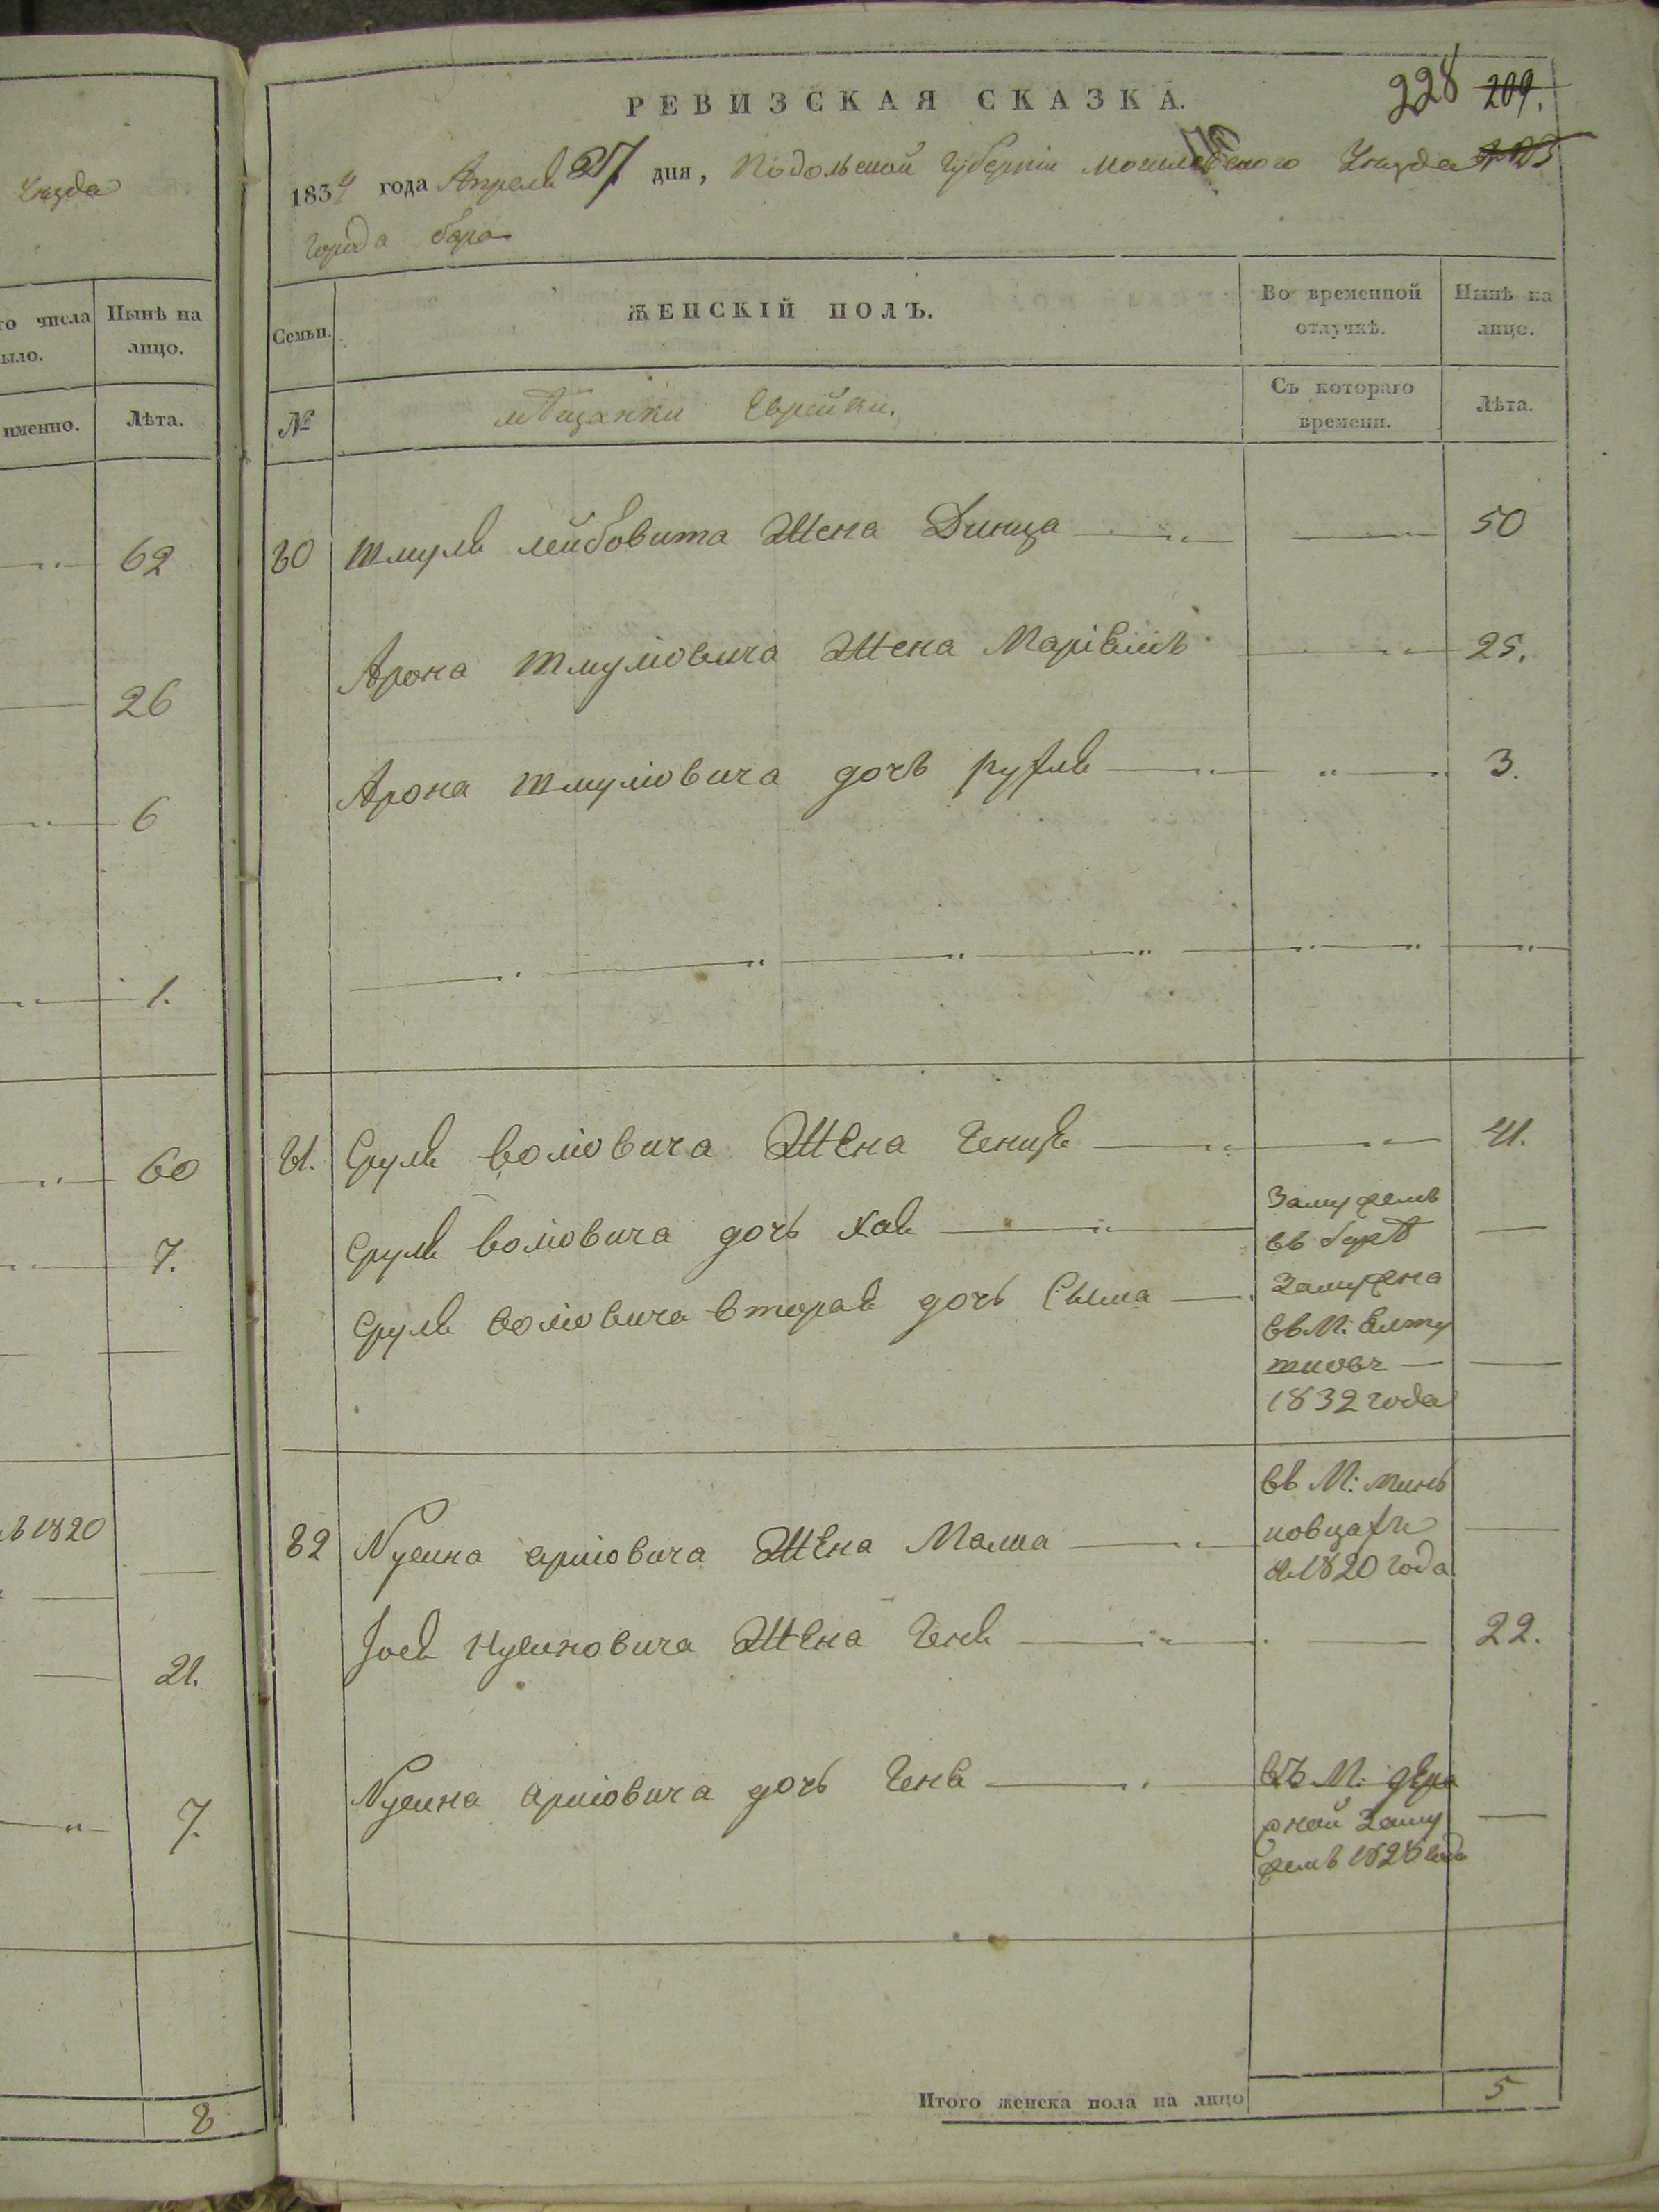 Уезда
го числа
ыло.
Нынѣ на
лицо.
именно.
Лѣта.
62
26
6
1.
60
7.
1820
21.
7.
8
РЕВИЗСКАЯ СКАЗКА.
228 209.
1834 года Апреля дня, Подольской Губерніи Могилевского Уезда
города бара
Семьи.
ЖЕНСКІЙ ПОЛЪ.
Во временной
отлучкѣ.
Нынѣ на
лице.
№
мѣщанки Еврейки.
Съ котораго
времени.
Лѣта.
Шмуля лейбовича Жена Динца 50
Арона Шмулiовича Жена 25.
Арона Шмулiовича дочь рухля 3.
Сруля волiовича Жена Геница 41.
Сруля волiовича дочь хая
Замужемъ
въ барѣ
Сруля волiовича вторая дочь Сыма
Замужна
въ М: Елту
шковѣ
1832 года
въ М: Минь
82 Нусина Жена Малка
ковцахъ
1820 года
Iося Нусиновича Жена Геня 22.
Нусина дочь Геня
въ М: дера
жней Заму
жемъ 1828 года
Итого женска пола на лицо 5